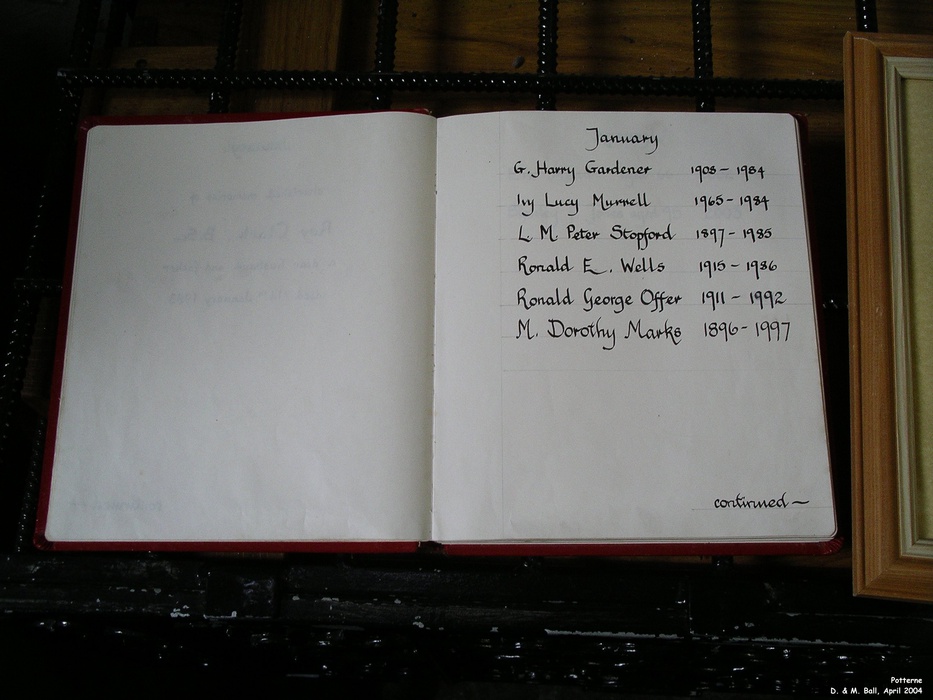 January
G. Harry Gardener 1903 – 1984
Ivy Lucy Murrell 1965 – 1984
L. M. Peter Stopford 1897 – 1985
Ronald E. Wells 1915 – 1986
Ronald George Offer 1911 – 1992
M. Dorothy Marks 1896 – 1997
continued ~
Potterne
D. & M. Ball, April 2004